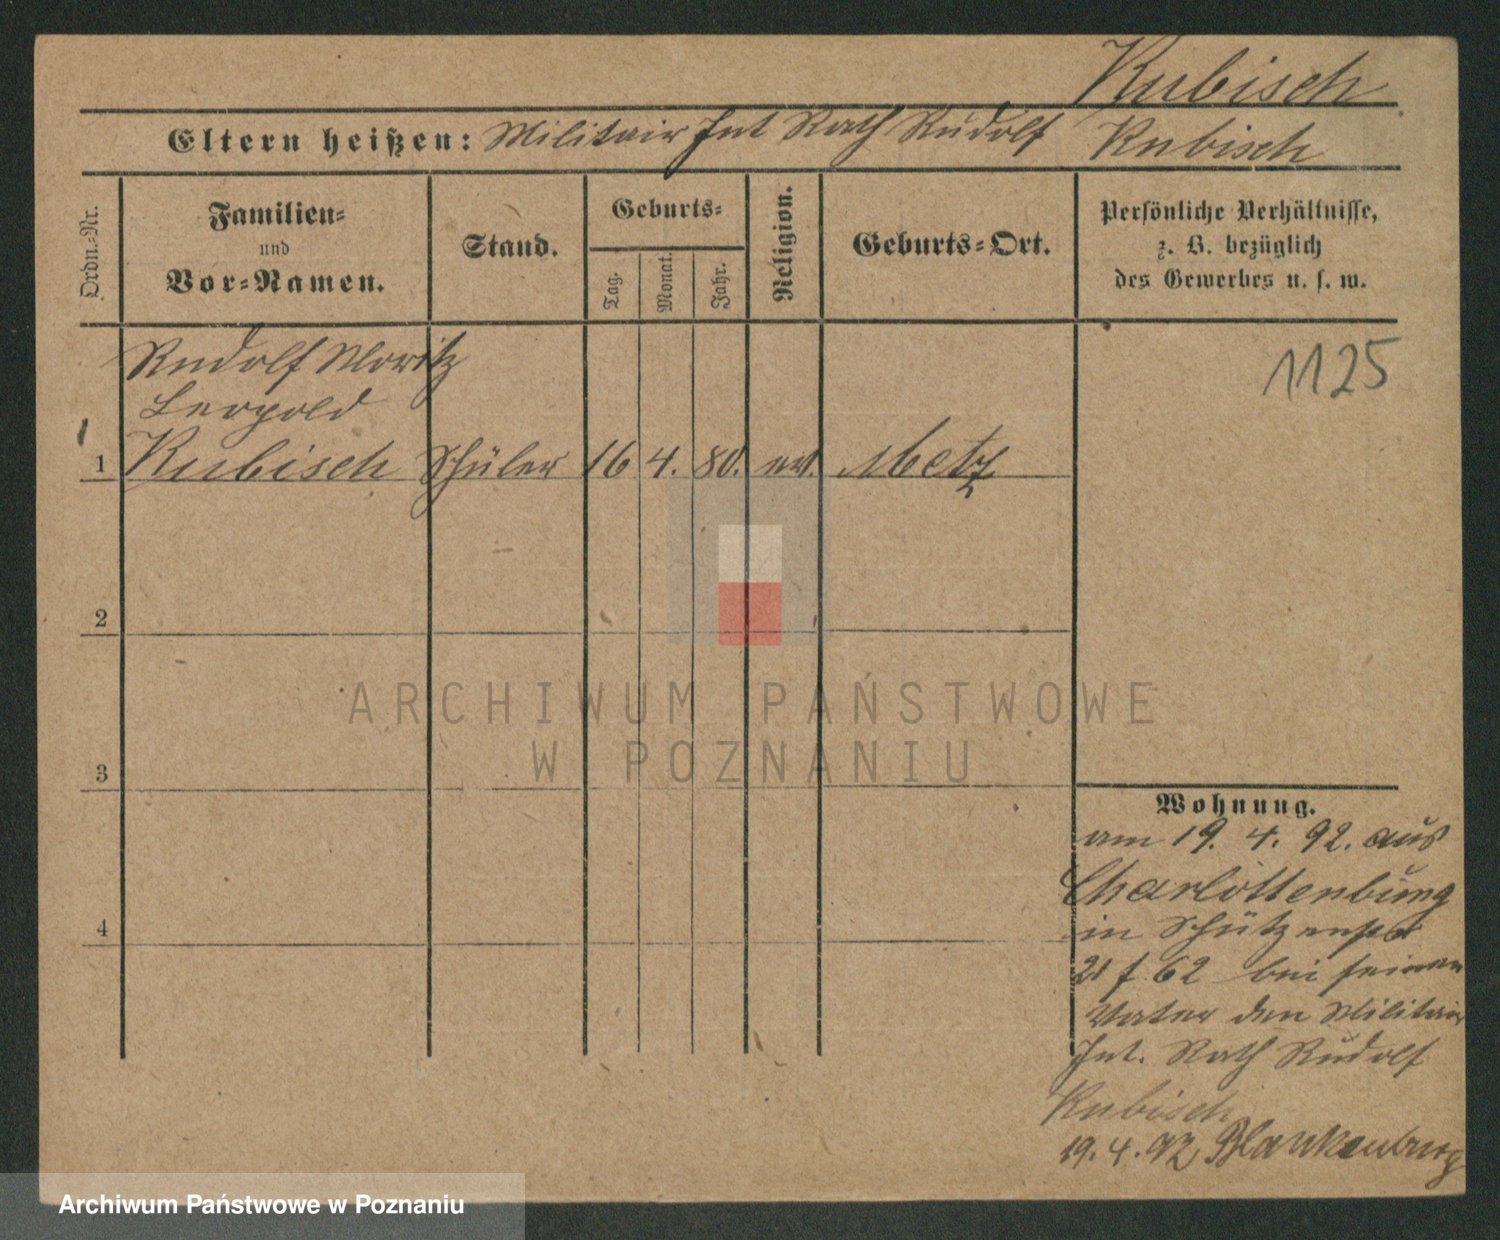 Kubisch
Eltern heißen: Militair Int Rath Rudolf Kubisch
Ordn.-Nr.
Familien-
und
Vor-Namen.
Stand.
Geburts-
Tag.
Monat.
Jahr.
Religion.
Geburts-Ort.
Persönliche Verhältnisse,
z. B. bezüglich
des Gewerbes u. s. w.
1125
Rudolf Moritz
Leopold
1 Kubisch Schüler 16 4. 80. ev. Metz
2
3
4
ARCHIWUM PAŃSTWOWE
W POZNANIU
Wohnung.
am 19. 4. 92. aus
Charlottenburg
in Schützenstr
21 f. 62 bei seinem
Vater den Militair
Int. Rath Rudolf
Kubisch
19. 4. 92 Blankenburg
Archiwum Państwowe w Poznaniu